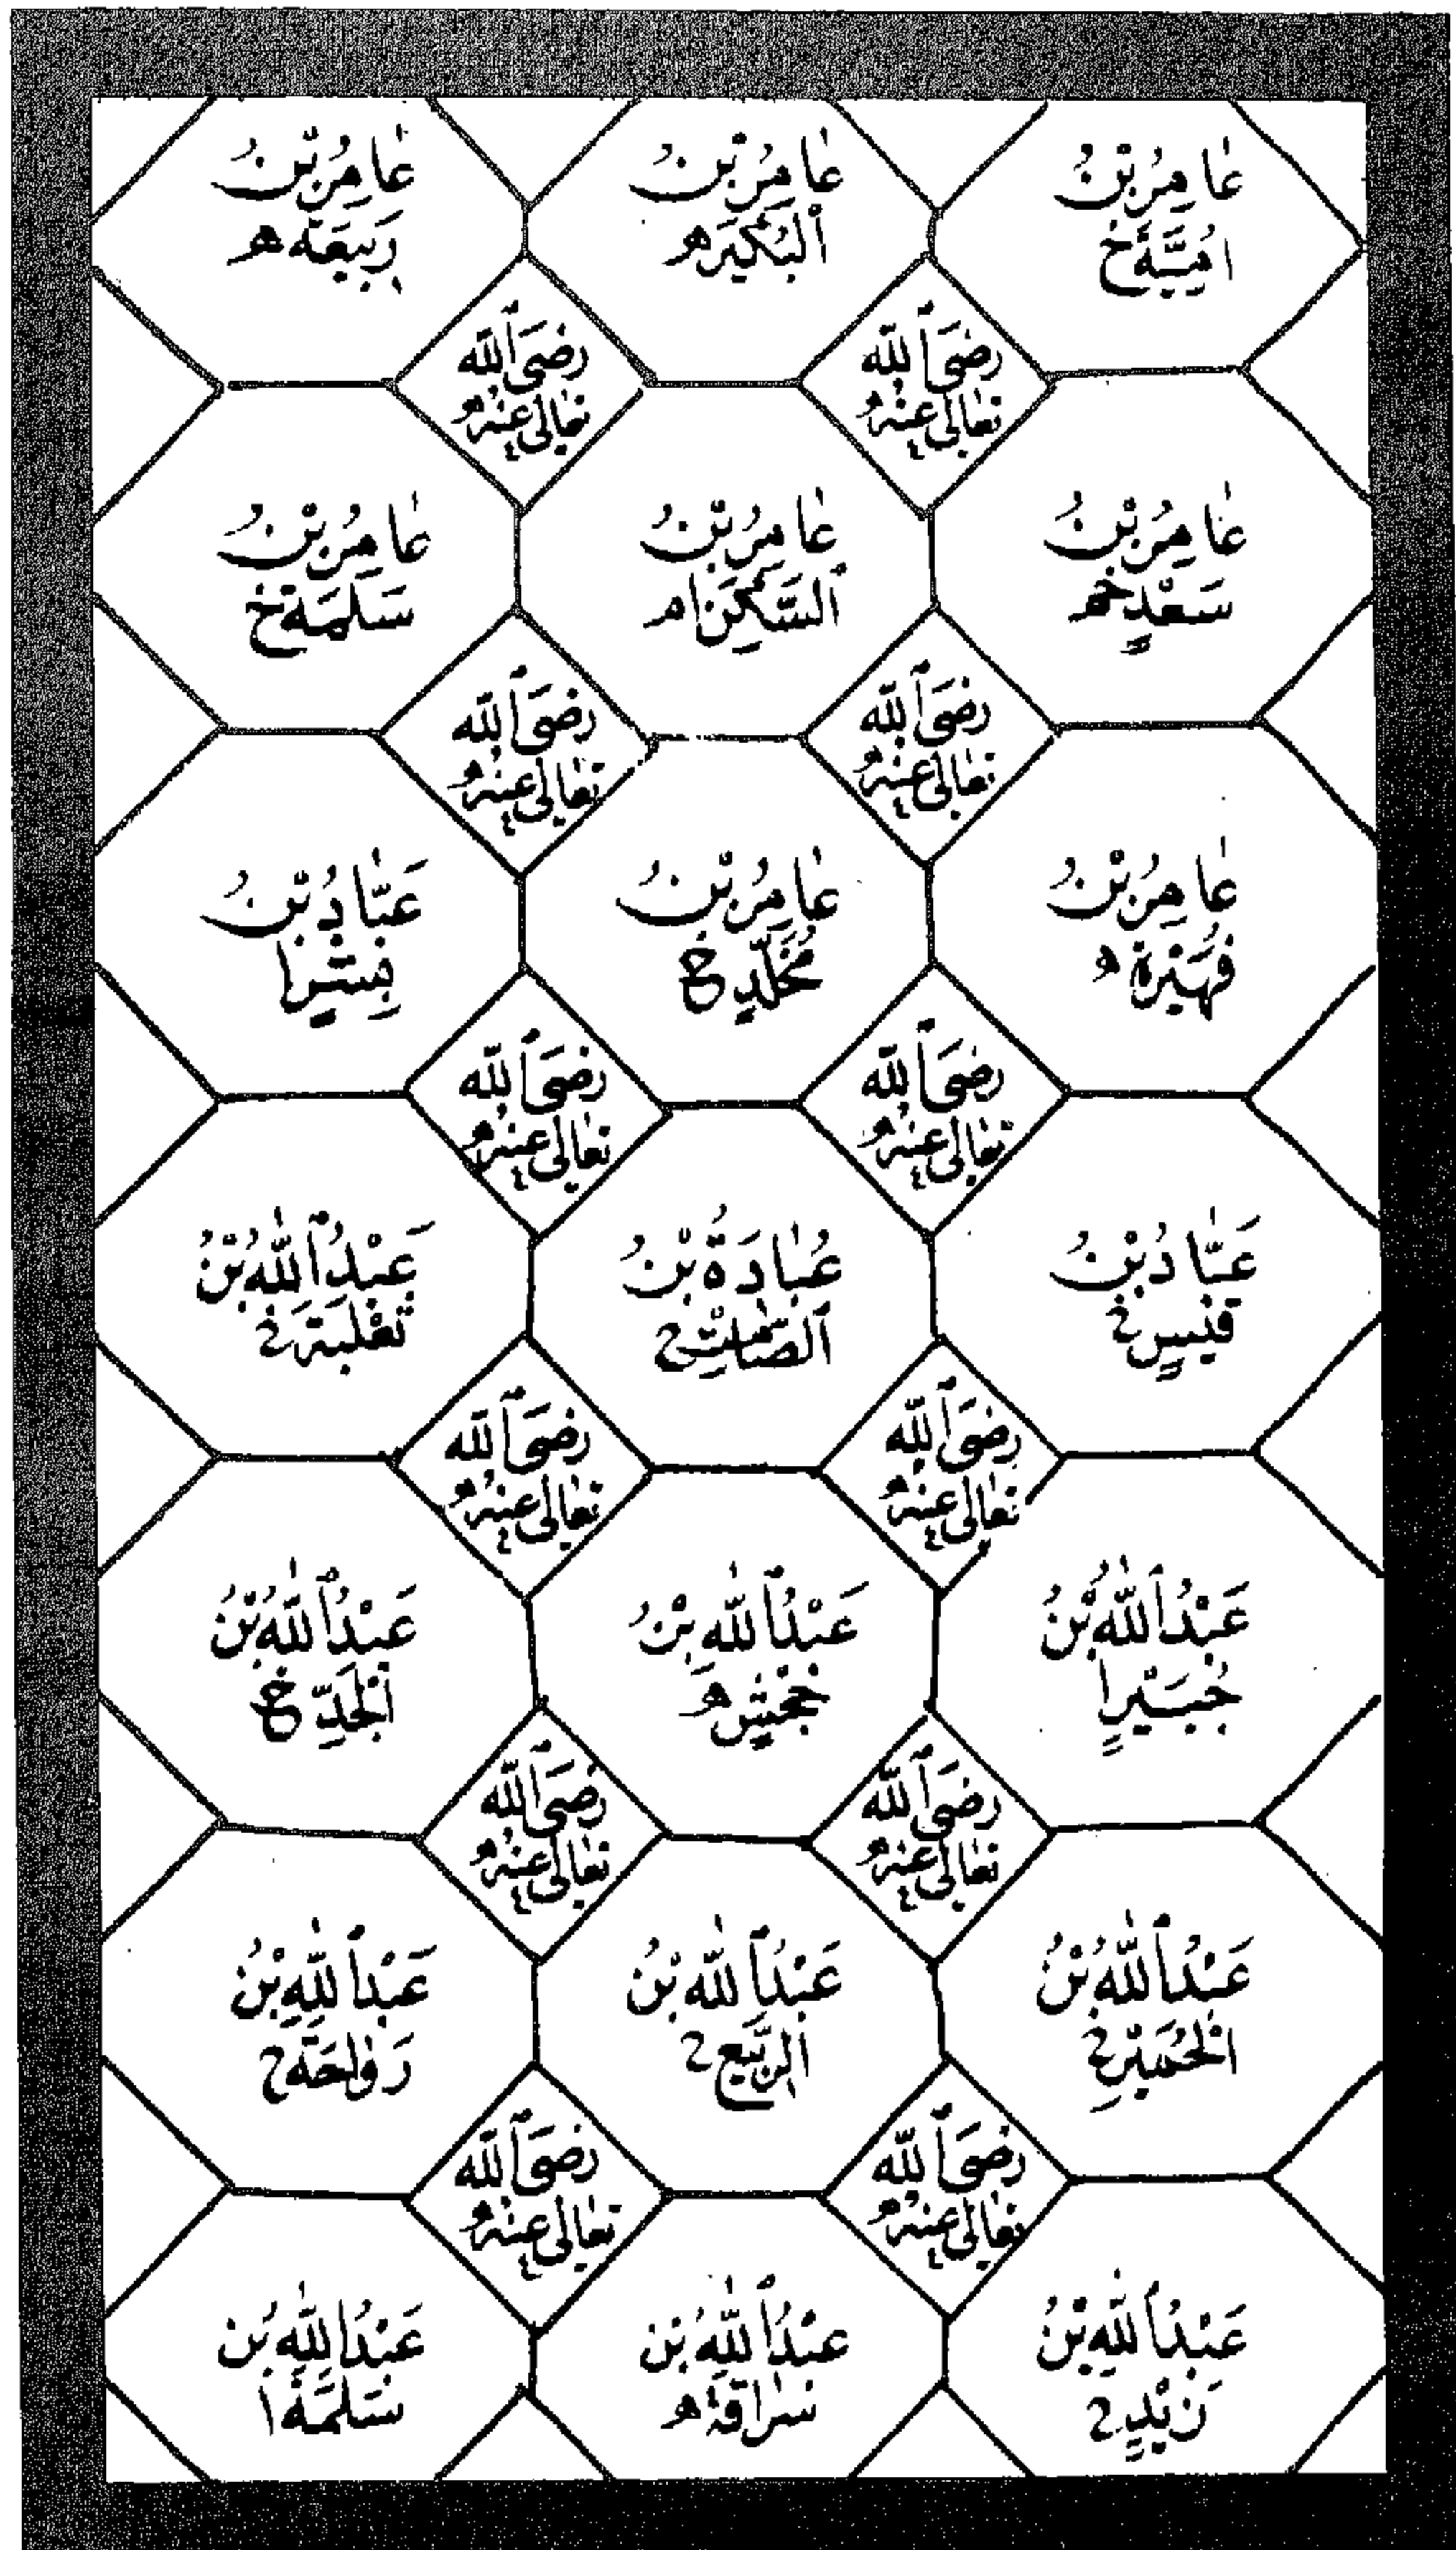 عَامِرُ بْنُ
اُمَيَّةَ خ
عَامِرُ بْنُ
الْبُكَيْرِ ه
عَامِرُ بْنُ
رَبِيعَةَ ه
رَضِيَ اللّٰه
تَعَالٰى عَنْهُ
رَضِيَ اللّٰه
تَعَالٰى عَنْهُ
عَامِرُ بْنُ
سَعْدٍ خم
عَامِرُ بْنُ
السَّكَنِ ام
عَامِرُ بْنُ
سَلَمَةَ خ
رَضِيَ اللّٰه
تَعَالٰى عَنْهُ
رَضِيَ اللّٰه
تَعَالٰى عَنْهُ
عَامِرُ بْنُ
فُهَيْرَةَ ه
عَامِرُ بْنُ
مُخَلَّدٍ خ
عَبَّادُ بْنُ
بِشْرٍ ا
رَضِيَ اللّٰه
تَعَالٰى عَنْهُ
رَضِيَ اللّٰه
تَعَالٰى عَنْهُ
عَبَّادُ بْنُ
قَيْسٍ خ
عُبَادَةُ بْنُ
الصَّامِتِ خ
عَبْدُ اللّٰهِ بْنُ
ثَعْلَبَةَ خ
رَضِيَ اللّٰه
تَعَالٰى عَنْهُ
رَضِيَ اللّٰه
تَعَالٰى عَنْهُ
عَبْدُ اللّٰهِ بْنُ
جُبَيْرٍ ا
عَبْدُ اللّٰهِ بْنُ
جَحْشٍ ه
عَبْدُ اللّٰهِ بْنُ
الْجَدِّ خ
رَضِيَ اللّٰه
تَعَالٰى عَنْهُ
رَضِيَ اللّٰه
تَعَالٰى عَنْهُ
عَبْدُ اللّٰهِ بْنُ
الْحُمَيِّرِ خ
عَبْدُ اللّٰهِ بْنُ
الرَّبِيعِ خ
عَبْدُ اللّٰهِ بْنُ
رَوَاحَةَ خ
رَضِيَ اللّٰه
تَعَالٰى عَنْهُ
رَضِيَ اللّٰه
تَعَالٰى عَنْهُ
عَبْدُ اللّٰهِ بْنُ
زَيْدٍ خ
عَبْدُ اللّٰهِ بْنُ
سُرَاقَةَ ه
عَبْدُ اللّٰهِ بْنُ
سَلَمَةَ ا